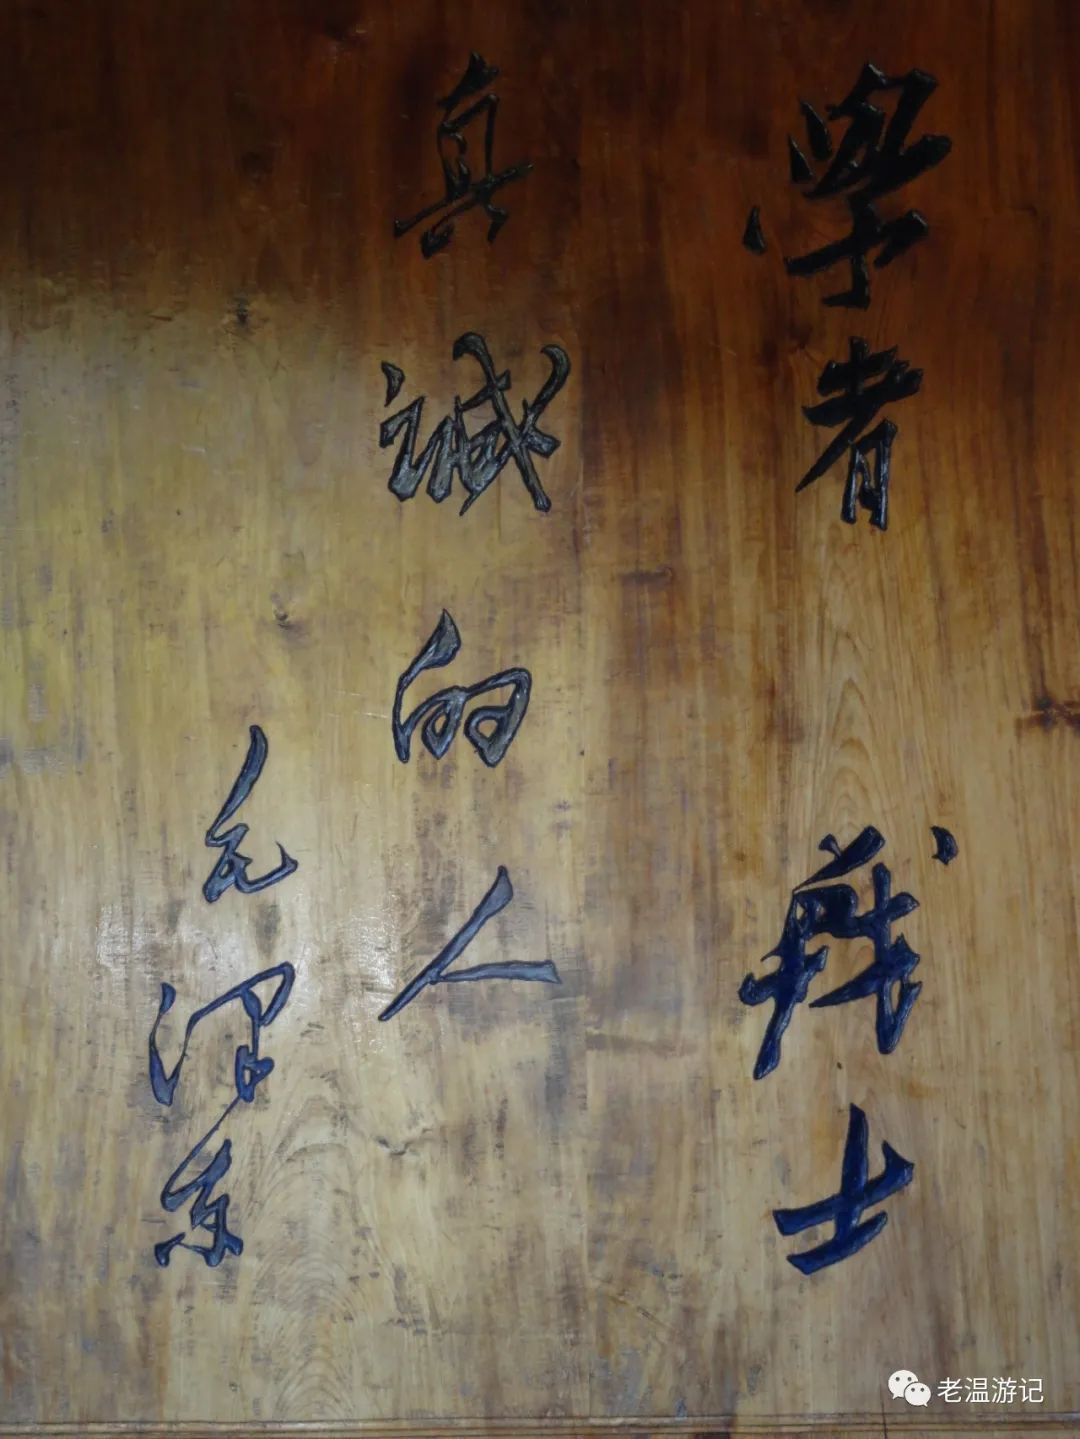 學者 战士
真誠的人
毛泽东
老温游记